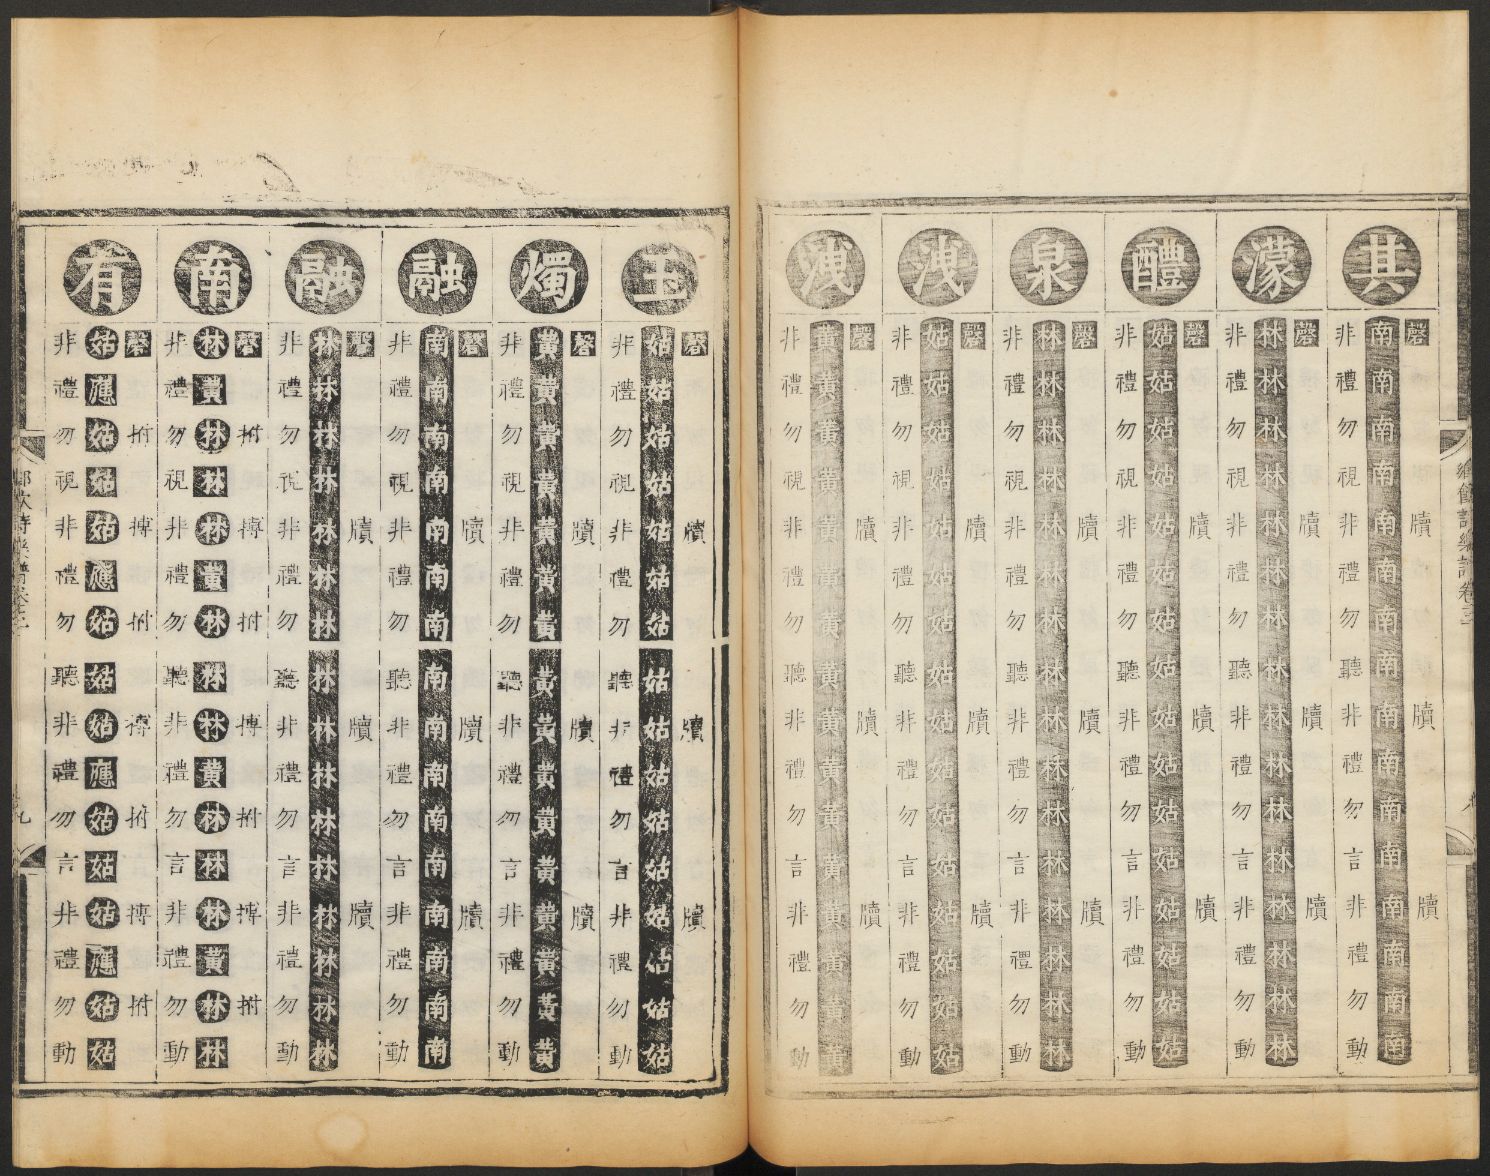 鄉飲詩樂譜卷之
其
磬牘牘牘
南南南南南南南南南南南南南南南南
非禮勿視非禮勿聽非禮勿言非禮勿動
濛
磬牘牘牘
林林林林林林林林林林林林林林林林
非禮勿視非禮勿聽非禮勿言非禮勿動
醴
磬牘牘牘
姑姑姑姑姑姑姑姑姑姑姑姑姑姑姑姑
非禮勿視非禮勿聽非禮勿言非禮勿動
泉
磬牘牘牘
林林林林林林林林林林林林林林林林
非禮勿視非禮勿聽非禮勿言非禮勿動
洩
磬牘牘牘
姑姑姑姑姑姑姑姑姑姑姑姑姑姑姑姑
非禮勿視非禮勿聽非禮勿言非禮勿動
洩
磬牘牘牘
黃黃黃黃黃黃黃黃黃黃黃黃黃黃黃黃
非禮勿視非禮勿聽非禮勿言非禮勿動
玉
磬牘牘牘
姑姑姑姑姑姑姑姑姑姑姑姑姑姑姑姑
非禮勿視非禮勿聽非禮勿言非禮勿動
燭
磬牘牘牘
黃黃黃黃黃黃黃黃黃黃黃黃黃黃黃黃
非禮勿視非禮勿聽非禮勿言非禮勿動
融
磬牘牘牘
南南南南南南南南南南南南南南南南
非禮勿視非禮勿聽非禮勿言非禮勿動
融
磬牘牘牘
林林林林林林林林林林林林林林林林
非禮勿視非禮勿聽非禮勿言非禮勿動
南
磬拊搏拊搏拊搏拊
林黃林林林黃林林林黃林林林黃林林
非禮勿視非禮勿聽非禮勿言非禮勿動
有
磬拊搏拊搏拊搏拊
姑應姑姑姑應姑姑姑應姑姑姑應姑姑
非禮勿視非禮勿聽非禮勿言非禮勿動
鄉飲詩樂譜卷之
九